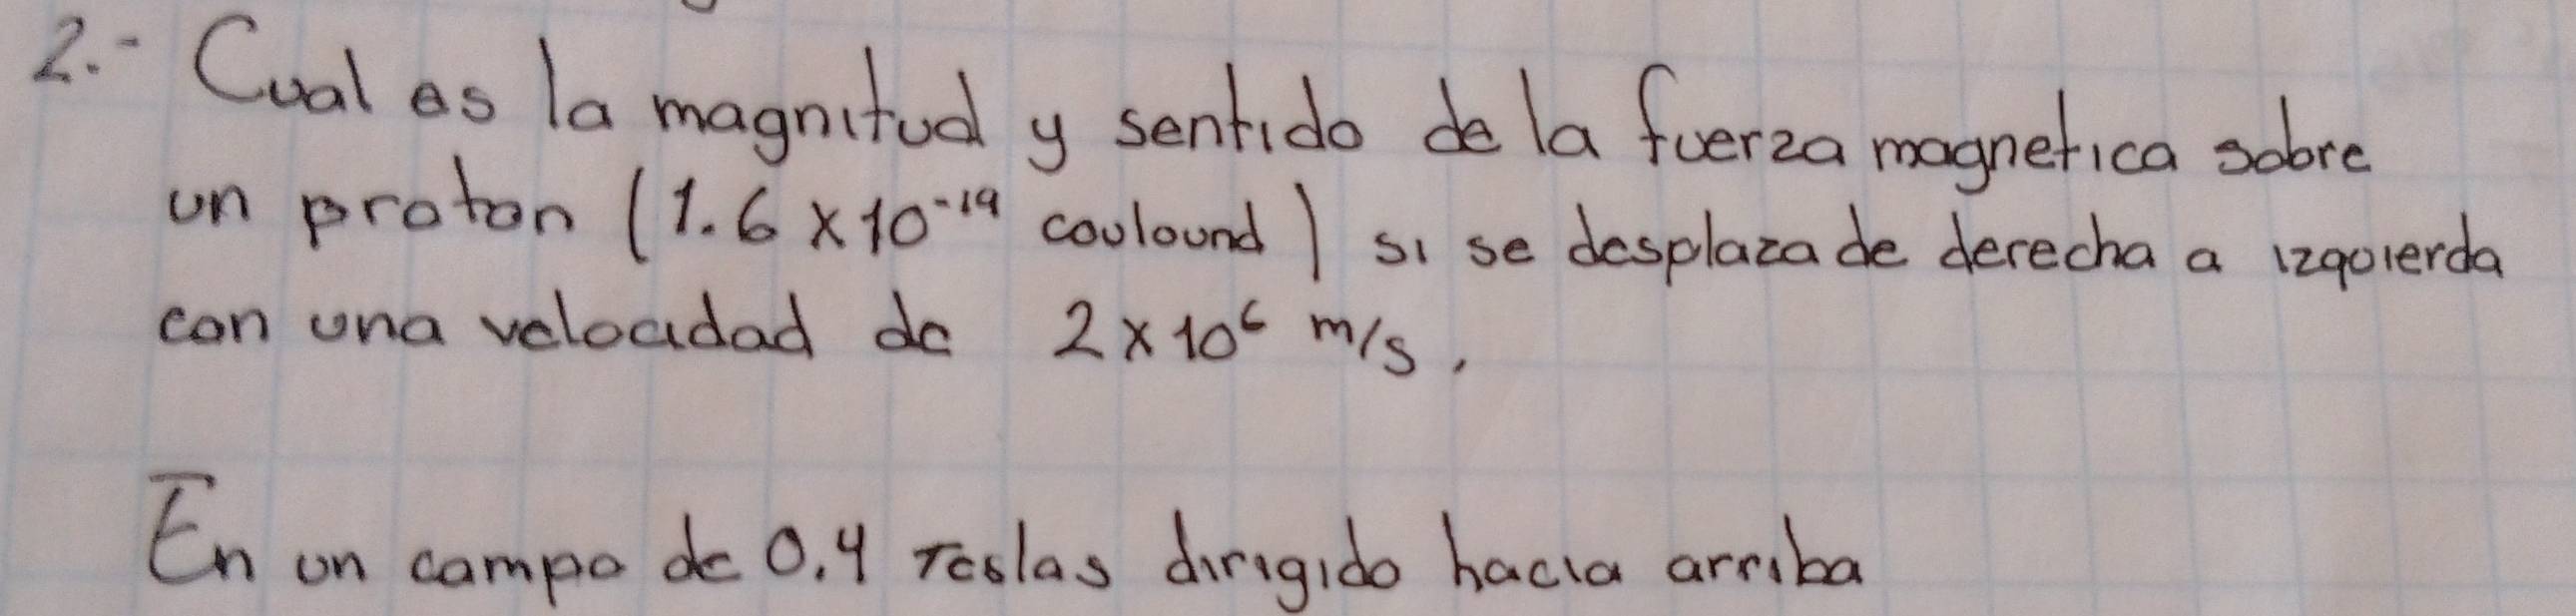 2.- Cual es la magnitud y sentido de la fuerza magnetica sobre
un proton (1.6 x 10⁻¹⁹ coulound) si se desplaza de derecha a izquierda
con una velocidad de 2 x 10⁶ m/s,
En un campo de 0.4 Teslas dirigido hacia arriba